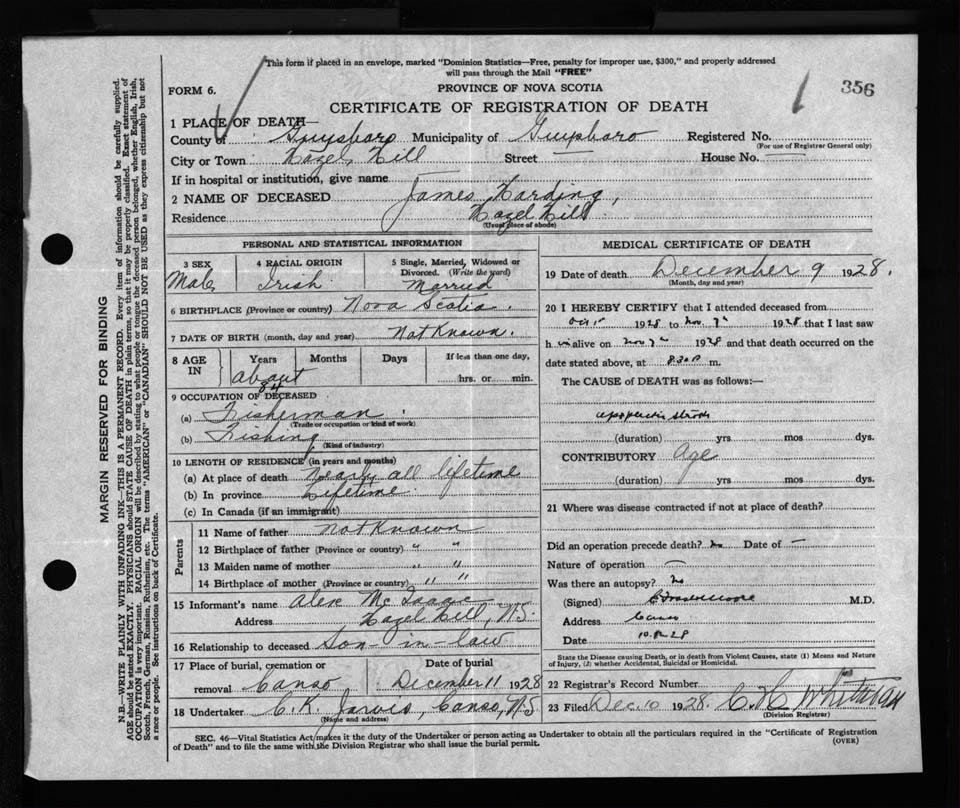 This form if placed in an envelope, marked "Dominion Statistics—Free, penalty for improper use, $300," and properly addressed
will pass through the Mail "FREE"
FORM 6.
PROVINCE OF NOVA SCOTIA
356
CERTIFICATE OF REGISTRATION OF DEATH
1 PLACE OF DEATH—
County of Guysboro Municipality of Guysboro Registered No.
(For use of Registrar General only)
City or Town Hazel Hill Street — House No. —
If in hospital or institution, give name
2 NAME OF DECEASED James Harding,
Residence Hazel Hill
(Usual place of abode)
PERSONAL AND STATISTICAL INFORMATION
3 SEX Male
4 RACIAL ORIGIN Irish
5 Single, Married, Widowed or Divorced. (Write the word) Married
6 BIRTHPLACE (Province or country) Nova Scotia.
7 DATE OF BIRTH (month, day and year) Not Known.
8 AGE IN Years Months Days If less than one day,
about 84 hrs. or min.
9 OCCUPATION OF DECEASED
(a) Fisherman
(Trade or occupation or kind of work)
(b) Fishing
(Kind of industry)
10 LENGTH OF RESIDENCE (in years and months)
(a) At place of death Nearly all lifetime
(b) In province Lifetime
(c) In Canada (if an immigrant)
Parents
11 Name of father Not Known
12 Birthplace of father (Province or country) " "
13 Maiden name of mother " "
14 Birthplace of mother (Province or country) " "
15 Informant's name Alex McIsaac
Address Hazel Hill, N.S.
16 Relationship to deceased Son-in-law
17 Place of burial, cremation or removal Canso
Date of burial December 11 1928
18 Undertaker C. K. Jarvis, Canso, N.S.
(Name and address)
MEDICAL CERTIFICATE OF DEATH
19 Date of death December 9 1928.
(Month, day and year)
20 I HEREBY CERTIFY that I attended deceased from
1928 to Nov 7th 1928 that I last saw
h im alive on Nov 7th 1928 and that death occurred on the
date stated above, at 8.30 P m.
The CAUSE of DEATH was as follows:
(duration) yrs mos dys.
CONTRIBUTORY Age
(duration) yrs mos dys.
21 Where was disease contracted if not at place of death?
Did an operation precede death? no Date of —
Nature of operation —
Was there an autopsy? no
(Signed) M.D.
Address Canso
Date
State the Disease causing Death, or in death from Violent Causes, state (1) Means and Nature
of Injury, (2) whether Accidental, Suicidal or Homicidal.
22 Registrar's Record Number
23 Filed Dec. 10 1928. C. H. Whitman
(Division Registrar)
SEC. 46—Vital Statistics Act makes it the duty of the Undertaker or person acting as Undertaker to obtain all the particulars required in the "Certificate of Registration
of Death" and to file the same with the Division Registrar who shall issue the burial permit.
(OVER)
MARGIN RESERVED FOR BINDING
N.B.—WRITE PLAINLY WITH UNFADING INK—THIS IS A PERMANENT RECORD. Every item of information should be carefully supplied.
AGE should be stated EXACTLY. PHYSICIANS should STATE CAUSE OF DEATH in plain terms, so that it may be properly classified. Exact statement of
OCCUPATION is very important. RACIAL ORIGIN will be described by stating to what people or tongue the deceased person belonged, whether English, Irish,
Scotch, French, German, Russian, Ruthenian, etc. The terms "AMERICAN" or "CANADIAN" SHOULD NOT BE USED as they express citizenship but not
a race or people. See instructions on back of Certificate.